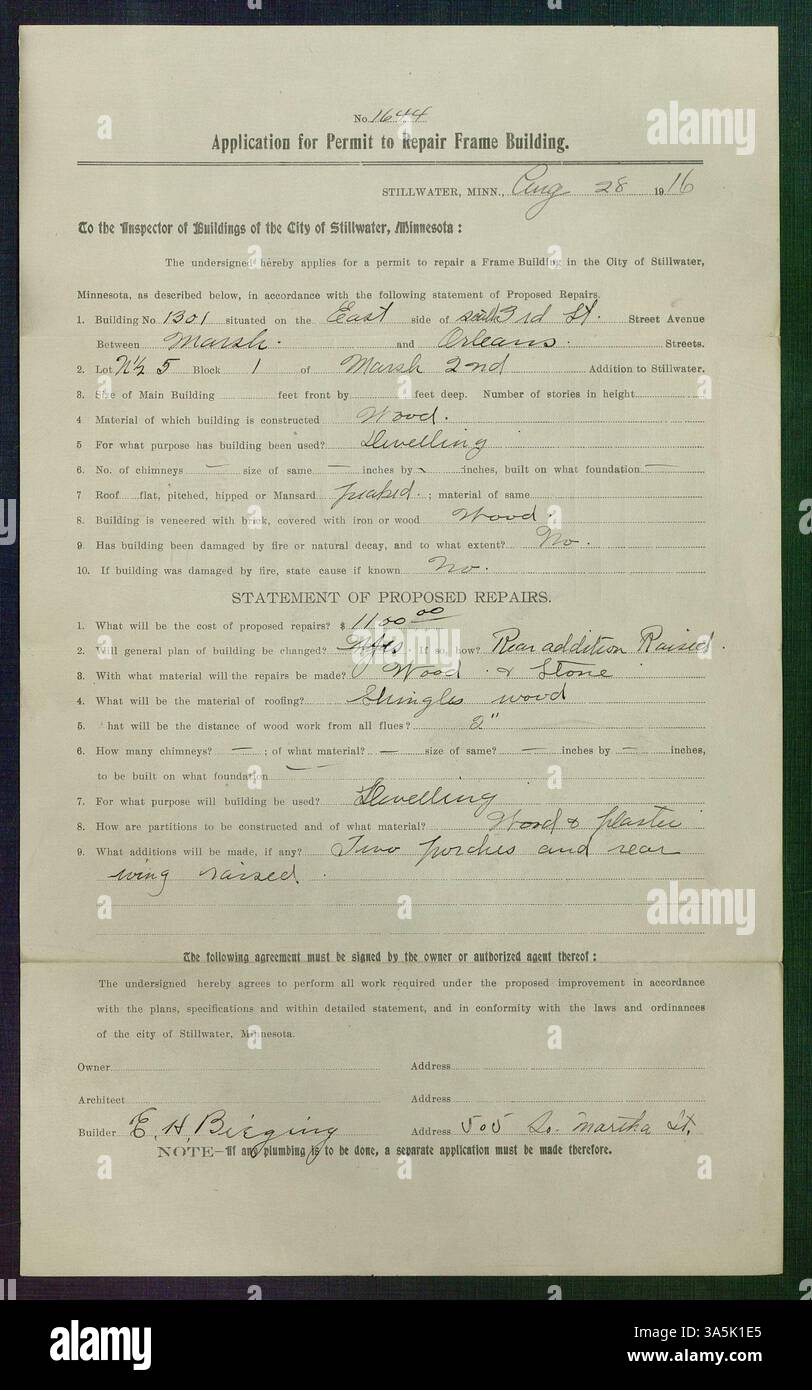 No. 1644
Application for Permit to Repair Frame Building.
STILLWATER, MINN., Aug 28 1916
To the Inspector of Buildings of the City of Stillwater, Minnesota :
The undersigned hereby applies for a permit to repair a Frame Building in the City of Stillwater,
Minnesota, as described below, in accordance with the following statement of Proposed Repairs.
1. Building No 1301 situated on the East side of South 3rd St. Street Avenue
Between Marsh. and Orleans. Streets.
2. Lot N½ 5 Block 1 of Marsh 2nd Addition to Stillwater.
3. Size of Main Building feet front by feet deep. Number of stories in height
4 Material of which building is constructed Wood.
5 For what purpose has building been used? Dwelling
6. No. of chimneys — size of same — inches by inches, built on what foundation —
7 Roof flat, pitched, hipped or Mansard peaked. ; material of same
8. Building is veneered with brick, covered with iron or wood Wood.
9 Has building been damaged by fire or natural decay, and to what extent? No.
10. If building was damaged by fire, state cause if known No.
STATEMENT OF PROPOSED REPAIRS.
1. What will be the cost of proposed repairs? $ 1100 00
2. Will general plan of building be changed? Yes. If so, how? Rear addition Raised.
3. With what material will the repairs be made? Wood & Stone
4. What will be the material of roofing? Shingles wood
5. hat will be the distance of wood work from all flues? 2"
6. How many chimneys? — ; of what material? — size of same? — inches by — inches,
to be built on what foundation —
7. For what purpose will building be used? Dwelling
8. How are partitions to be constructed and of what material? Wood & plaster
9. What additions will be made, if any? Two porches and rear
wing raised.
The following agreement must be signed by the owner or authorized agent thereof :
The undersigned hereby agrees to perform all work required under the proposed improvement in accordance
with the plans, specifications and within detailed statement, and in conformity with the laws and ordinances
of the city of Stillwater, Minnesota.
Owner Address
Architect Address
Builder E. H. Bieging Address 505 So. Martha St.
NOTE—If any plumbing is to be done, a separate application must be made therefore.
alamy
Image ID: 3A5K1E5
www.alamy.com